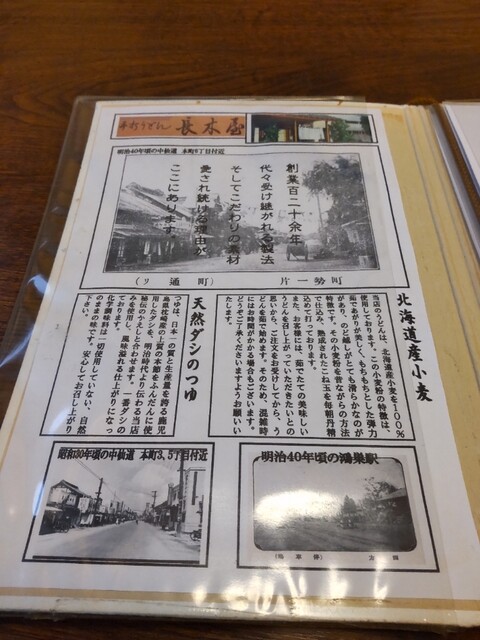 手打うどん 長木屋
明治40年頃の中仙道 本町6丁目付近
創業百二十余年
代々受け継がれる製法
そしてこだわりの素材
愛され続ける理由が
ここにあります。
(リ通町) 片一勢町
北海道産小麦
当店のうどんは、北海道産小麦を100%
使用しております。この小麦粉の特徴は、
茹であがりが美しく、もちもちとした弾力
があり、のど越しがとても滑らかなのが
特徴です。その小麦粉を昔ながらの方法
で仕込み、熟成されたこね玉を毎朝丹精
込めて打っております。
また、お客様には、茹でたての美味しい
うどんを召し上がっていただきたいとの
思いから、ご注文をお受けしてから、う
どんを茹で始めます。そのため、混雑時
にはお時間がかかる場合もございます。
どうぞご了承くださいますようお願いい
たします。
天然ダシのつゆ
つゆは、日本一の質と生産量を誇る鹿児
島県枕崎産の上質の本節をふんだんに使
用したダシを、明治時代より伝わる当店
秘伝のかえしと合わせます。一番ダシの
みを使用し、風味溢れる仕上がりになっ
ております。
化学調味料は一切使用していない、自然
のままの味です。安心してお召し上がり
下さい。
昭和30年頃の中仙道 本町3,5丁目付近
明治40年頃の鴻巣駅